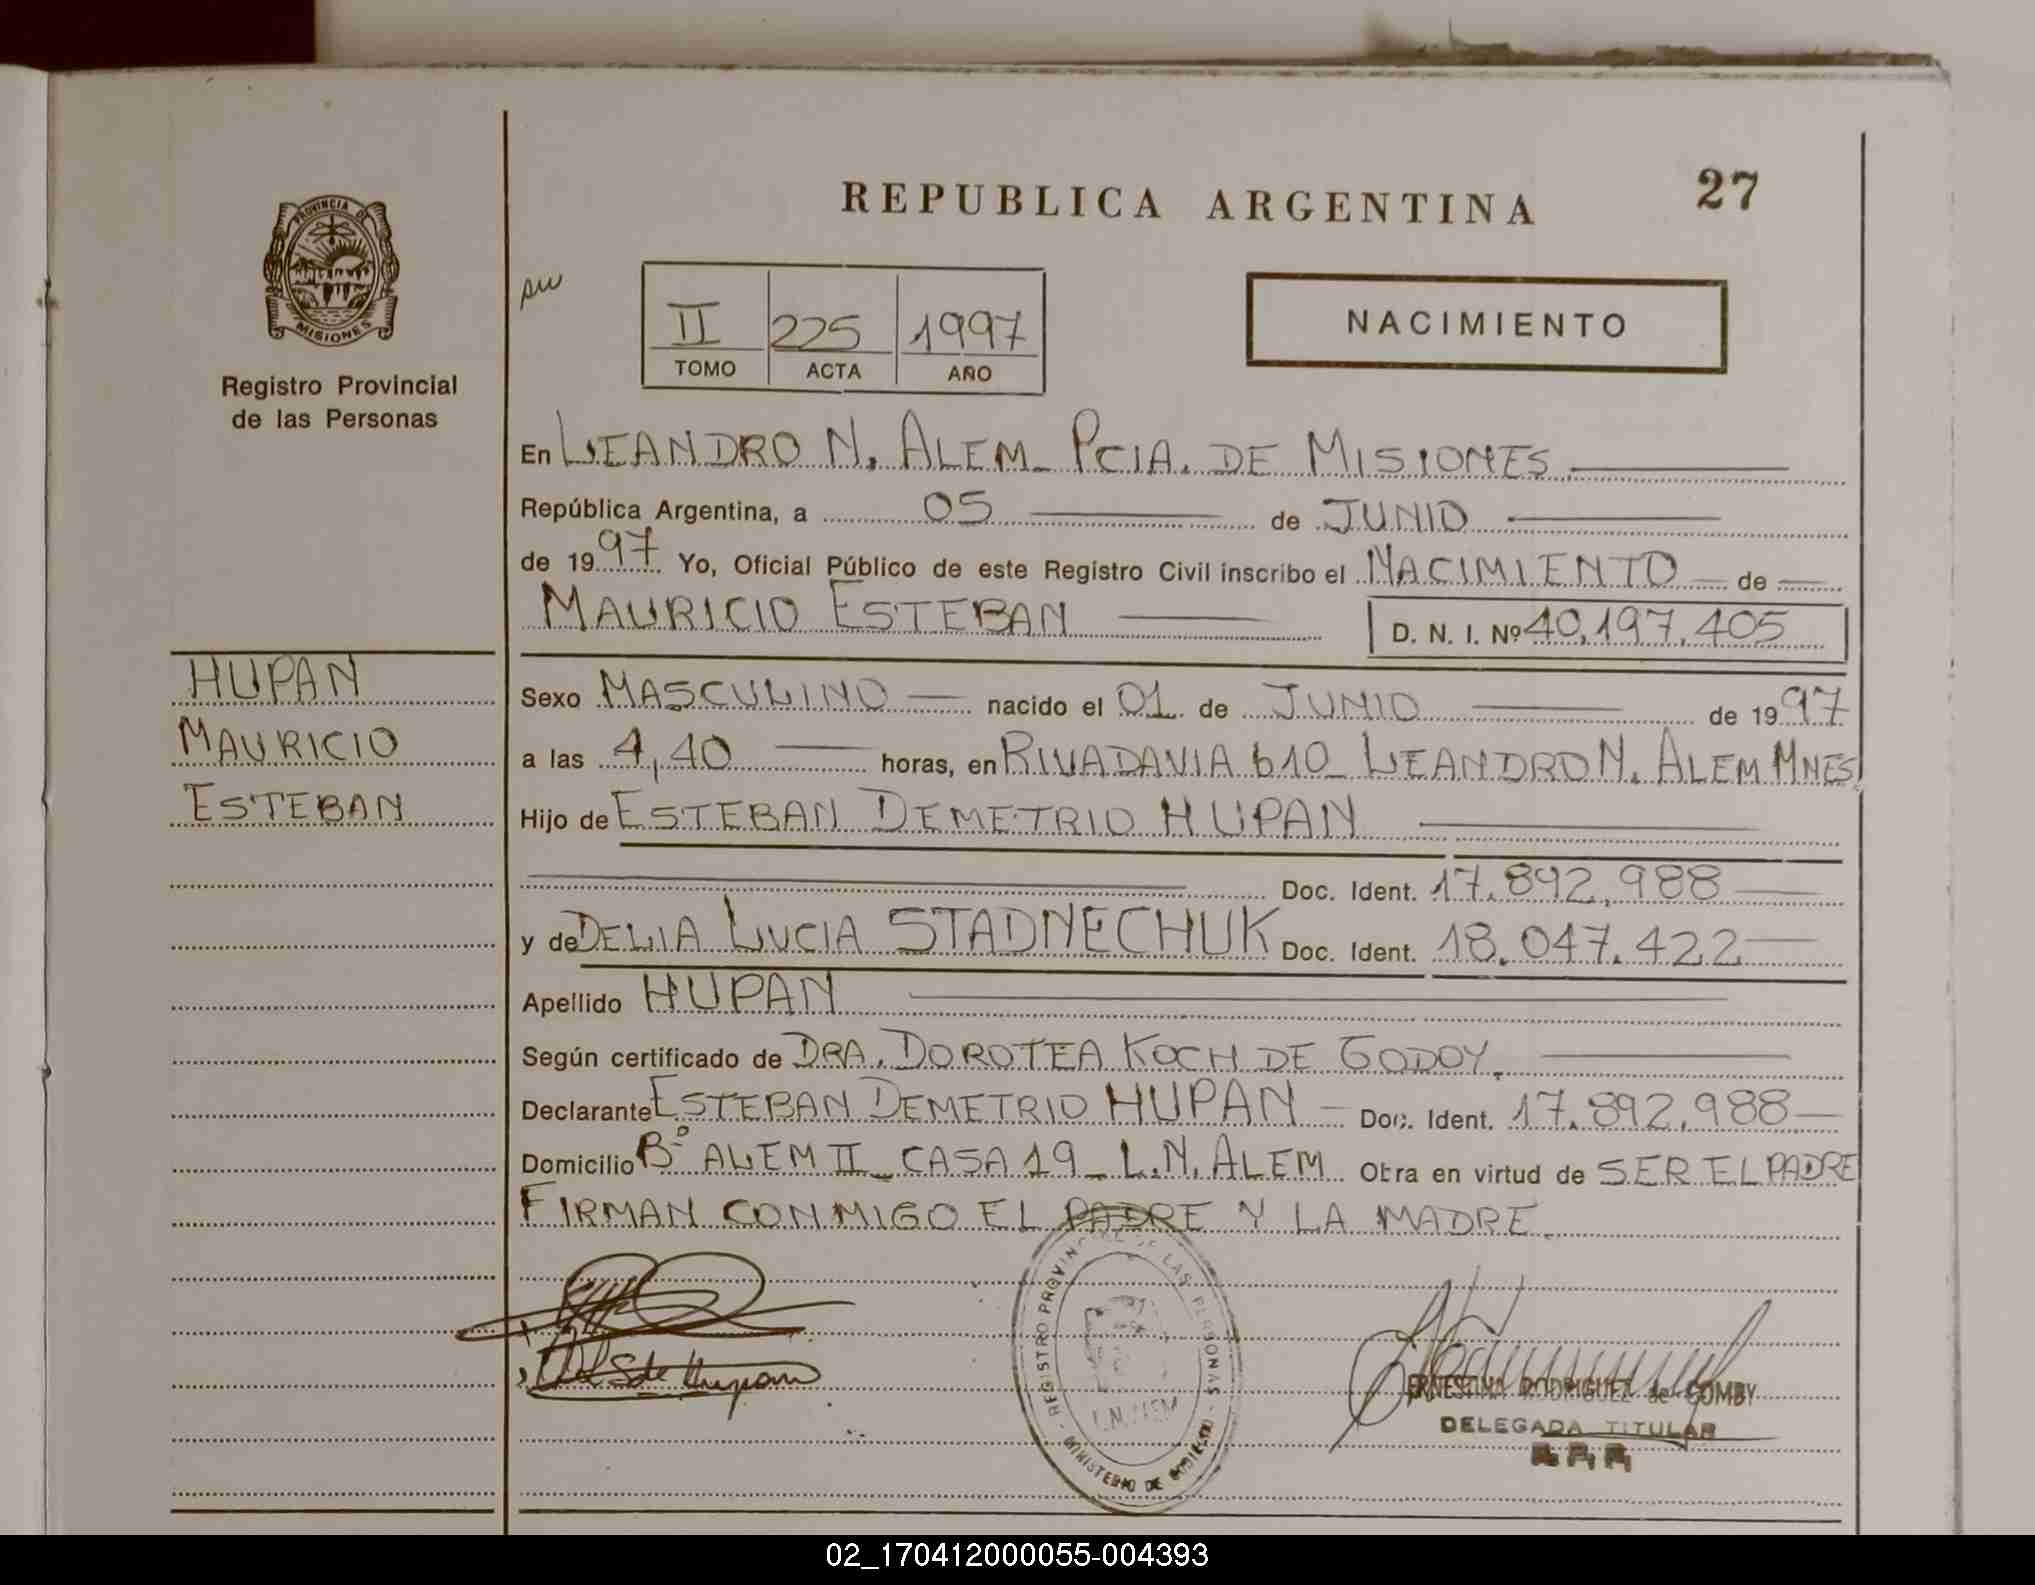 REPUBLICA ARGENTINA
27
PROVINCIA DE
MISIONES
Registro Provincial
de las Personas
II 225 1997
TOMO ACTA AÑO
NACIMIENTO
En LEANDRO N. ALEM_ PCIA. DE MISIONES
República Argentina, a 05 de JUNIO
de 1997 Yo, Oficial Público de este Registro Civil inscribo el NACIMIENTO de
MAURICIO ESTEBAN D. N. I. Nº 40,197,405
HUPAN
MAURICIO
ESTEBAN
Sexo MASCULINO nacido el 01 de JUNIO de 1997
a las 4,40 horas, en RIVADAVIA 610_ LEANDRO N. ALEM MNES
Hijo de ESTEBAN DEMETRIO HUPAN
Doc. Ident. 17.892.988
y de DELIA LUCIA STADNECHUK Doc. Ident. 18.047.422
Apellido HUPAN
Según certificado de DRA. DOROTEA KOCH DE GODOY.
Declarante ESTEBAN DEMETRIO HUPAN Doc. Ident. 17.892.988
Domicilio Bº ALEM II_ CASA 19_ L.N. ALEM Obra en virtud de SER EL PADRE
FIRMAN CONMIGO EL PADRE Y LA MADRE
de Hupan
REGISTRO PROVINCIAL DE LAS PERSONAS
L.N. ALEM
MINISTERIO DE GOBIERNO
ERNESTINA RODRIGUEZ de GOMBY
DELEGADA TITULAR
02_170412000055-004393